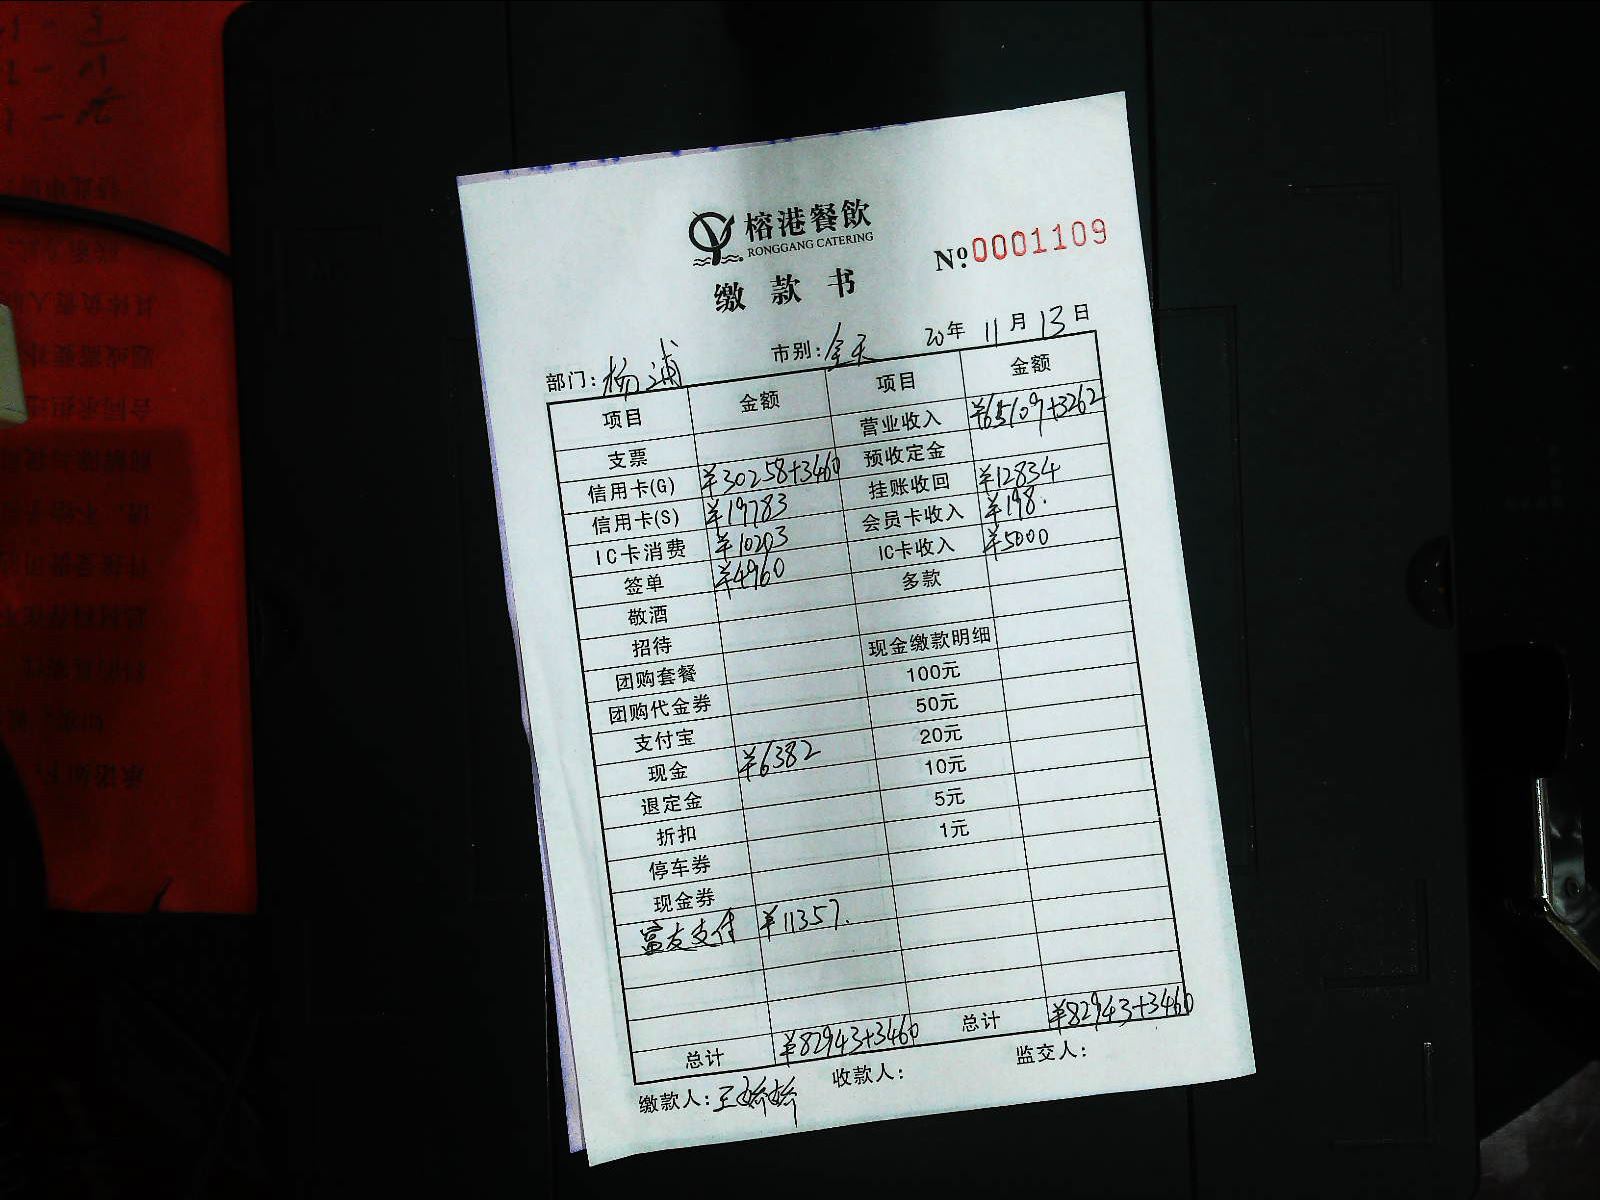 榕港餐飲
RONGGANG CATERING
№0001109
缴款书
部门：杨浦 市别：全天 20年 11月 13日
项目 金额 项目 金额
营业收入 ¥65109+3262
支票 预收定金
信用卡(G) ¥30258+3460 挂账收回 ¥12834
信用卡(S) ¥19783 会员卡收入 ¥198.
IC卡消费 ¥10203 IC卡收入 ¥5000
签单 ¥4960 多款
敬酒
招待 现金缴款明细
团购套餐 100元
团购代金券 50元
支付宝 20元
现金 ¥6382 10元
退定金 5元
折扣 1元
停车券
现金券
富友支付 ¥11357.
总计 ¥82943+3460 总计 ¥82943+3460
缴款人：王婷婷 收款人： 监交人：